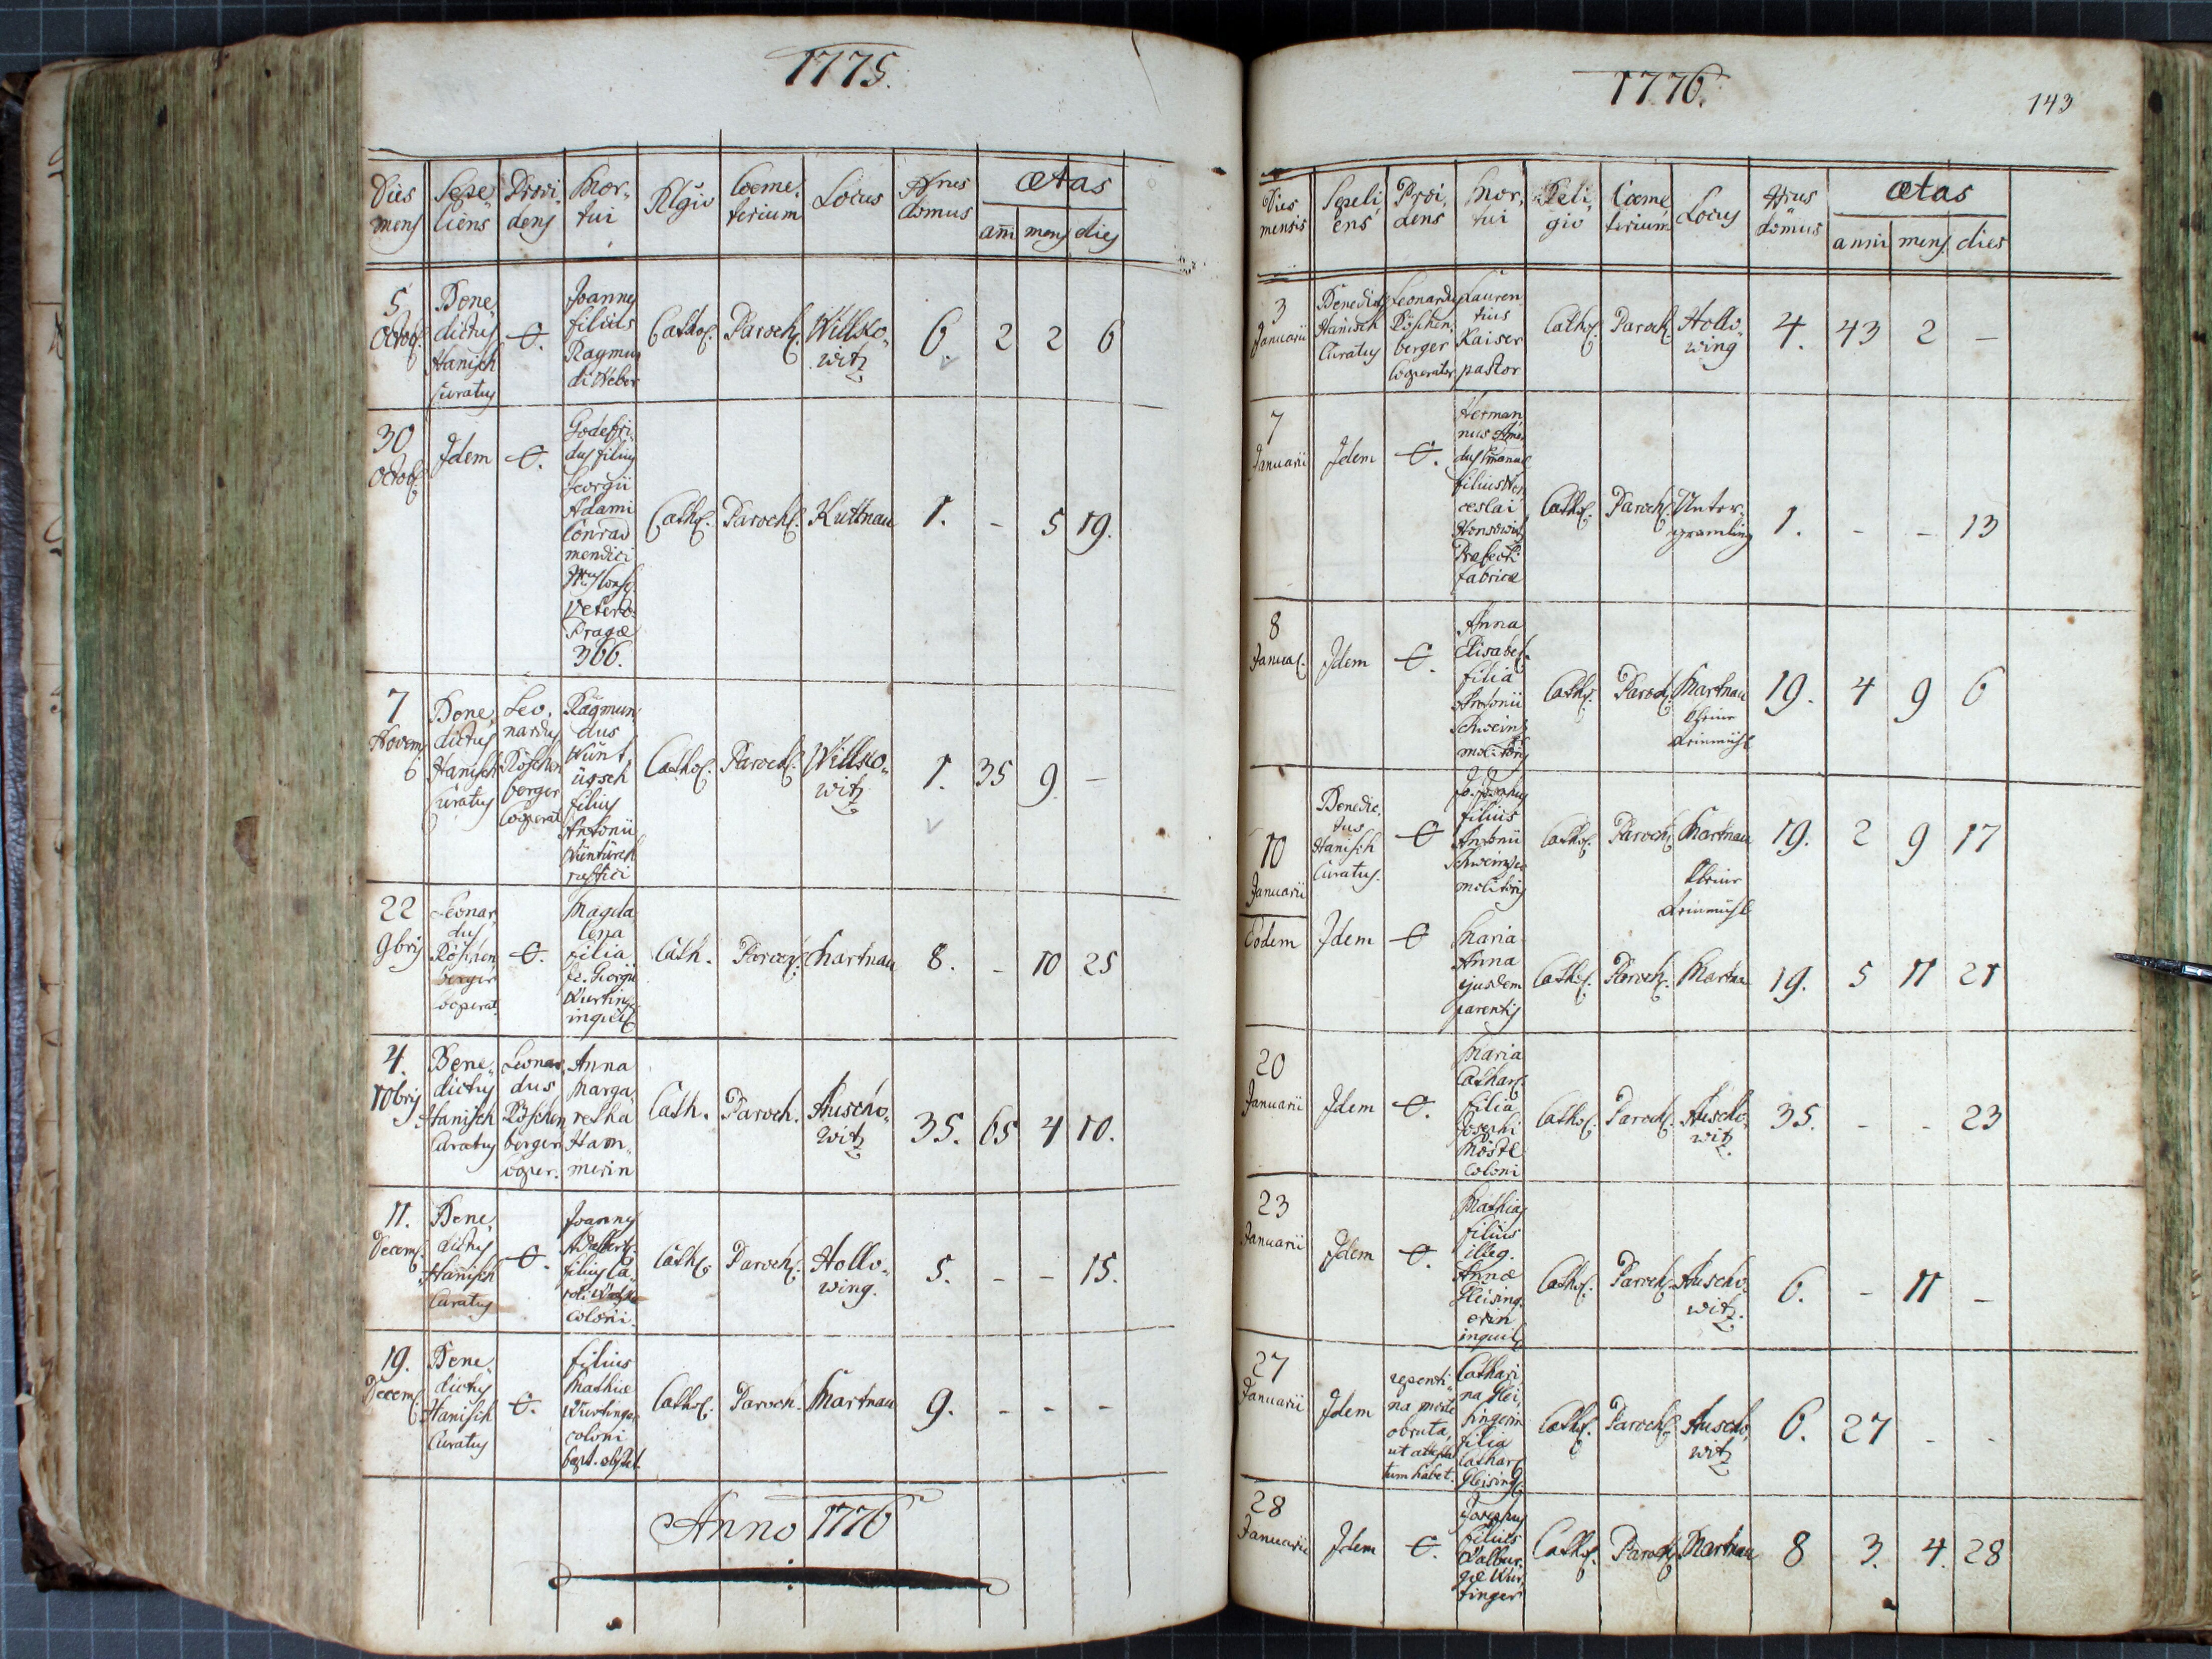 1775.
Dies mens
Sepeliens
Providens
Mortui
Rlgio
Coemeterium
Locus
Nrus domus
ætas
anni mens dies
5 Octob.
Bene,
dictus
Hanisch
Curatus
O.
Joannes
filius
Raymun
di Weber
Cathol. Paroch. Willko,
witz
6. 2 2 6
30 Octob.
Idem O.
Godefri,
dus filius
Georgii
Adami
Conrad
mendici
Vetero
Pragæ
366.
Cathol. Paroch. Kuttnau 1. - 5 19.
7 Novem.
Bene,
dictus
Hanisch
Curatus
Leo,
nardus
Röschen
berger
Cooperat.
Raymun,
dus
Wunt,
ürsch
filius
Antonii
Wüntürsch
rustici
Cathol. Paroch. Willko,
witz
1. 35 9. -
22 9bris
Leonar,
dus
Röschen
berger
Cooperat.
O.
Magda
lena
filia
Jo. Georgii
Wurting
inquil.
Cath. Paroch. Martnau 8. - 10 25
4. 10bris
Bene,
dictus
Hanisch
Curatus
Leonar,
dus
Röschen
berger
Cooper.
Anna
Marga,
retha
Ham,
merin
Cath. Paroch. Auscho,
witz
35. 65 4 10.
11. Decem.
Bene,
dictus
Hanisch
Curatus
O.
Joannes
Adalbert,
filius Ca,
roli
coloni.
Cathol. Paroch. Hollo,
wing.
5. - - 15.
19. Decem.
Bene,
dictus
Hanisch
Curatus
O.
filius
Mathiæ
Wurtinger
coloni
bapt. obstet.
Cathol. Paroch. Martnau 9. - - -
Anno 1776
1776.
143
Dies mensis
Sepeli,
ens
Provi,
dens
Mor,
tui
Reli,
gio
Coeme
terium
Locus
Nrus
domus
ætas
anni mens. dies
3 Januarii
Benedictus
Hanisch
Curatus
Leonardus
Röschen,
berger
Cooperator
Lauren
tius
Kaiser
pastor
Cathol. Paroch. Hollo,
wing
4. 43 2 -
7 Januarii
Idem O.
Herman
nus
dus Emanuel
filius Wen
ceslai
Præfecti
fabricæ
Cathol. Paroch. Unter,
gramling
1. - - 13
8 Januar.
Idem O.
Anna
Elisabet.
filia
Antonii
Schweins
molitoris
Cathol. Paroch. Martnau
19. 4 9 6
10 Januarii
Benedic,
tus
Hanisch
Curatus.
O
filius
Antonii
molitoris
Cathol. Paroch. Martnau
19. 2 9 17
Eodem Idem O
Maria
Anna
ejusdem
parentis
Cathol. Paroch. Martnau 19. 5 11 21
20 Januarii
Idem O.
Maria
Cathar.
filia
Josephi
Köstl
coloni
Cathol. Paroch. Auscho,
witz.
35. - - 23
23 Januarii
Idem O.
Mathias
filius
illeg.
Annæ
Gleising,
erin
inquil.
Cathol. Paroch. Auscho,
witz.
6. - 11 -
27 Januarii
Idem
repenti,
na morte
obruta,
ut attesta
tum habet.
Cathari
na Glei,
singerin
filia
Cathar.
Gleising.
Cathol. Paroch. Auscho,
witz
6. 27 - -
28 Januarii
Idem O.
Josephus
filius
Walbur,
gæ Wur,
tinger
Cathol. Paroch. Martnau 8 3. 4. 28